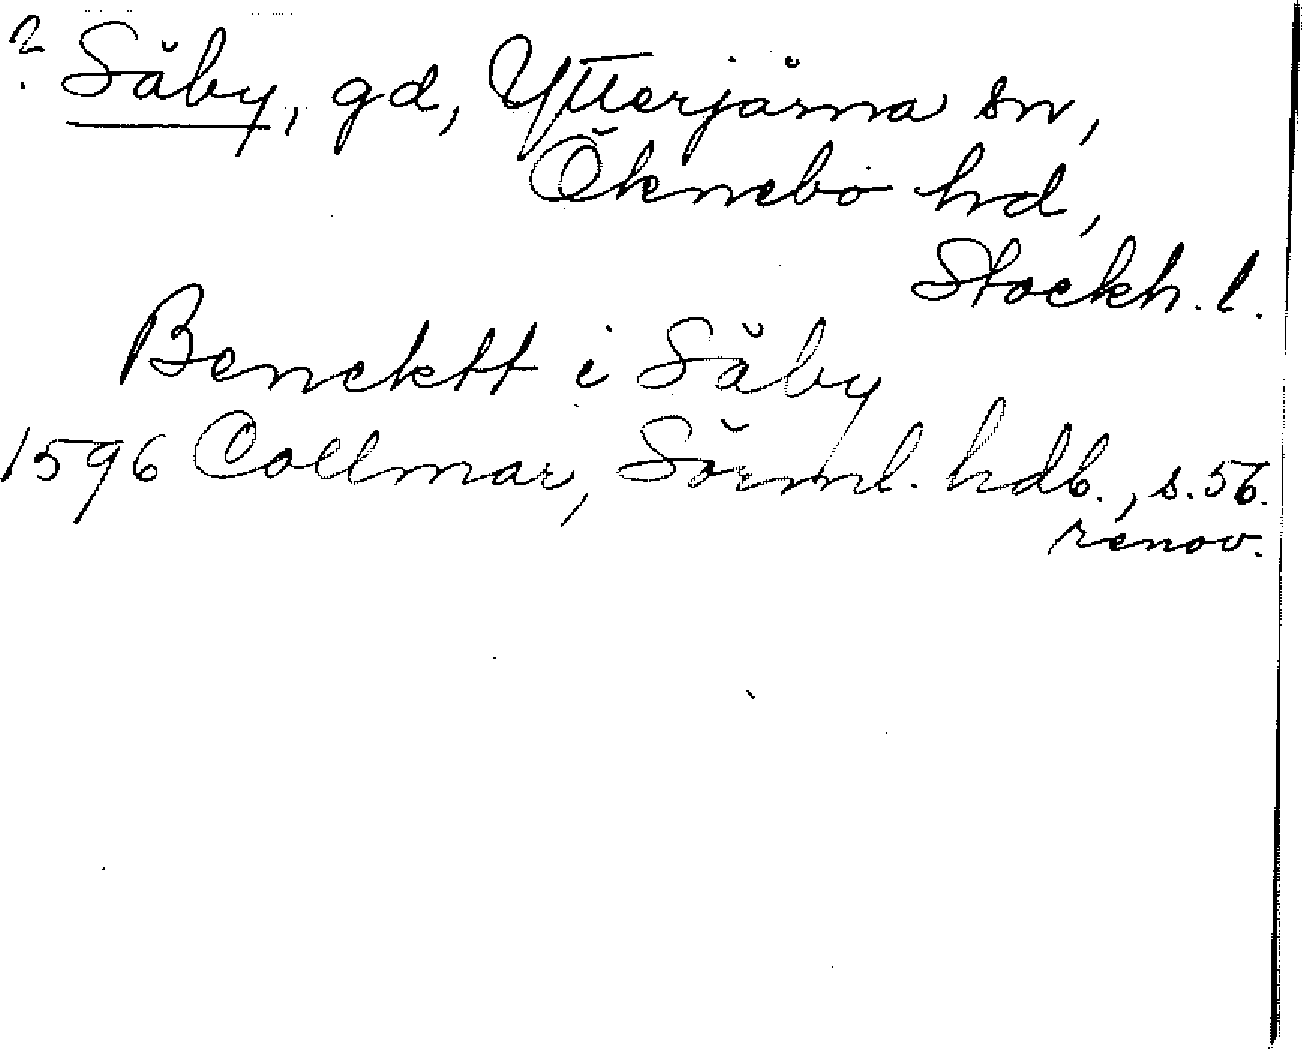 ? Säby, gd, Ytterjärna sn,
Öknebo hd,
Stockh. l.
Benektt i Säby
1596 Collmar, Sörml. hdb., s. 56.
renov.